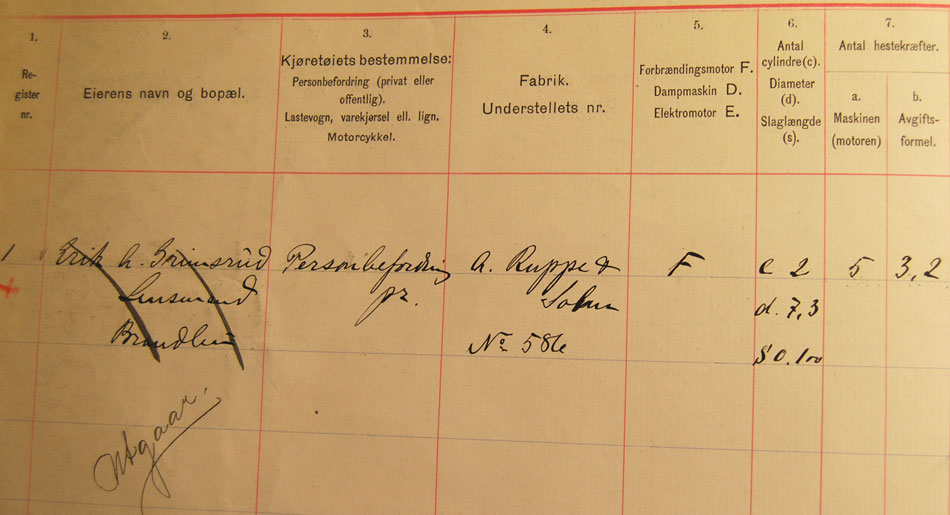 1.
Re-
gister
nr.
2.
Eierens navn og bopæl.
3.
Kjøretøiets bestemmelse:
Personbefordring (privat eller
offentlig).
Lastevogn, varekjørsel ell. lign.
Motorcykkel.
4.
Fabrik.
Understellets nr.
5.
Forbrændingsmotor F.
Dampmaskin D.
Elektromotor E.
6.
Antal
cylindre(c).
Diameter
(d).
Slaglængde
(s).
7.
Antal hestekræfter.
a.
Maskinen
(motoren)
b.
Avgifts-
formel.
1
Erik A. Grimsrud
Brandbu
Personbefordring
pr.
A. Ruppe &
Sohn
No 586
F
c 2
d. 7,3
S 0.100
5
3,2
Utgaar.